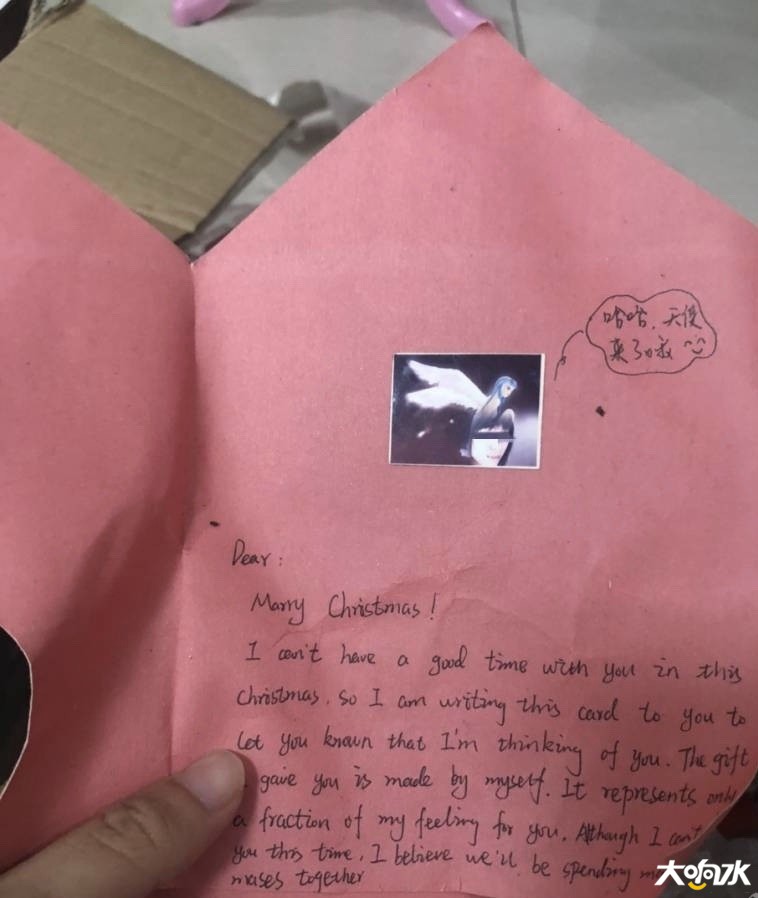 哈哈，天使
来了哦
Dear:
Marry Christmas!
I can't have a good time with you in this
christmas. so I am writing this card to you to
let you known that I'm thinking of you. The gift
gave you is made by myself. It represents only
a fraction of my feeling for you. Although I can't
you this time, I believe we'll be spending
mases together
大响水